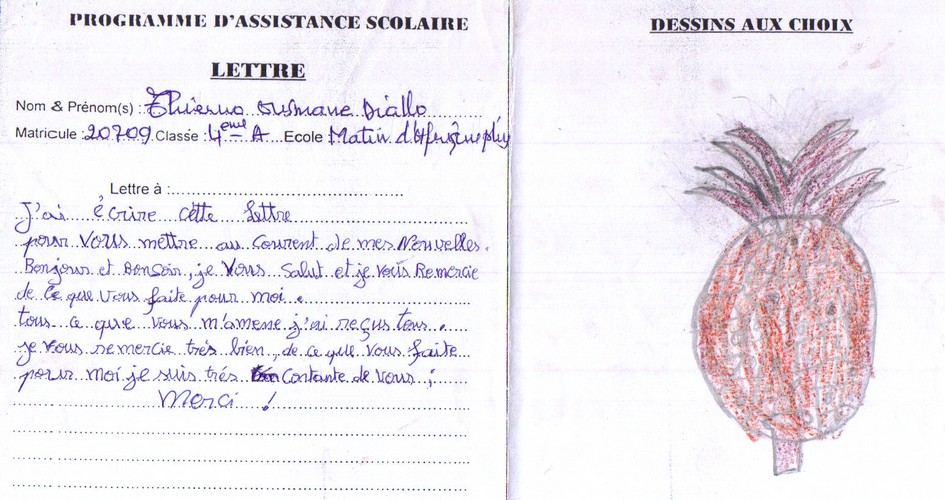 PROGRAMME D'ASSISTANCE SCOLAIRE
LETTRE
Nom & Prénom(s) : Thierno Ousmane Diallo
Matricule : 20709 Classe : 4ème A Ecole Matin d'Afrique plus
Lettre à :
J'ai écrire cette lettre
pour vous mettre au Courent de mes Nouvelles.
Bonjour et BonSoir, je Vous Salut et je vous Remercie
de Ce que vous faite pour moi.
tous ce que vous m'amene j'ai reçus tous.
je vous remercie trés bien, de ce que vous faite
pour moi je suis trés Contante de vous ;
Merci !
DESSINS AUX CHOIX